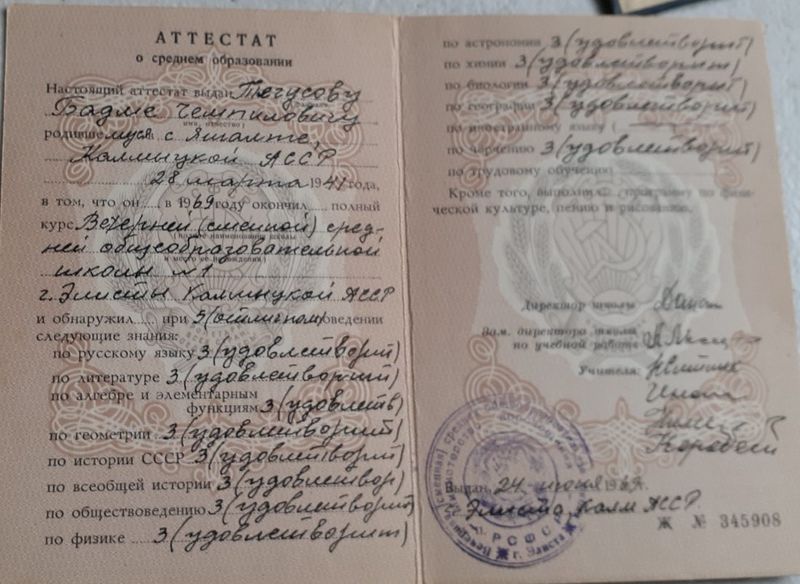 АТТЕСТАТ
о среднем образовании
Настоящий аттестат выдан Тегусову
Бадме Чемпиловичу
родившемуся с Яшалте,
Калмыцкой АССР
28 марта 1941 года,
в том, что он в 1969 году окончил полный
курс Вечерней (сменной) сред-
ней общеобразовательной
школы № 1
г. Элисты Калмыцкой АССР
и обнаружил при 3 (отличном) поведении
следующие знания:
по русскому языку 3 (удовлетворит)
по литературе 3 (удовлетворит)
по алгебре и элементарным
функциям 3 (удовлетв)
по геометрии 3 (удовлетворит)
по истории СССР 3 (удовлетворит)
по всеобщей истории 3 (удовлетвор)
по обществоведению 3 (удовлетворит)
по физике 3 (удовлетворит)
по астрономии 3 (удовлетворит)
по химии 3 (удовлетворит)
по биологии 3 (удовлетворит)
по географии 3 (удовлетворит)
по иностранному языку (
по черчению 3 (удовлетворит)
по трудовому обучению
Кроме того, выполнил программу по физи-
ческой культуре, пению и рисованию.
Директор школы
Зам. директора школы
по учебной работе
Учителя:
Выдан 24 июня 1969 г.
г. Элиста Калм. АССР.
Ж № 345908
РСФСР
г. Элиста